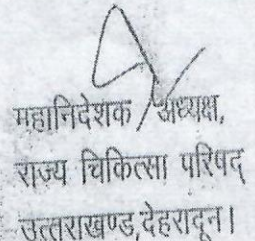 महानिदेशक / अध्यक्ष,
राज्य चिकित्सा परिषद्
उत्तराखण्ड,देहरादून।